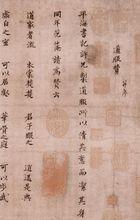 道服贊
平海書記許兄製道服所以清其意而潔其身
同年范仲淹請為贊云
道家者流 衣裳楚楚 君子服之 逍遙是與
虛白之室 可以居處 華胥之庭 可以步武